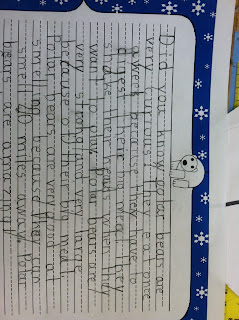 Did you know polar bears are
very They eat one
a week because they have to
digest their big meal. They
their heads when they
want to play. Polar bears are
very strong and very large
because of their big meal.
Polar bears are very good at
smelling because they can
smell 20 miles away. Polar
bears are amazing!